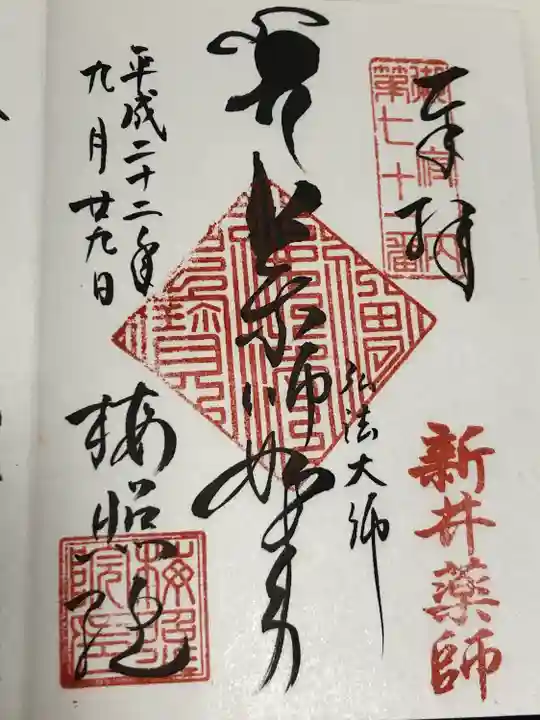 奉拝
御府内
第七十一番
新井薬師
弘法大師
薬師如来
平成二十二年
九月廿九日
梅照院